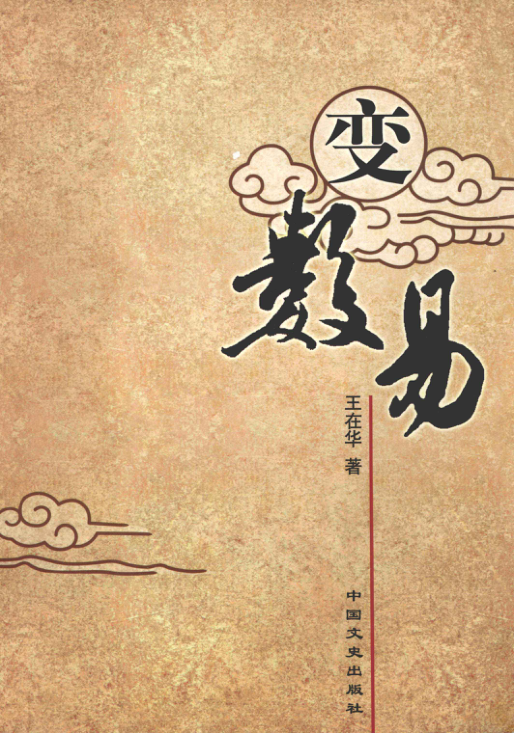 变
数
易
王在华 著
中国文史出版社